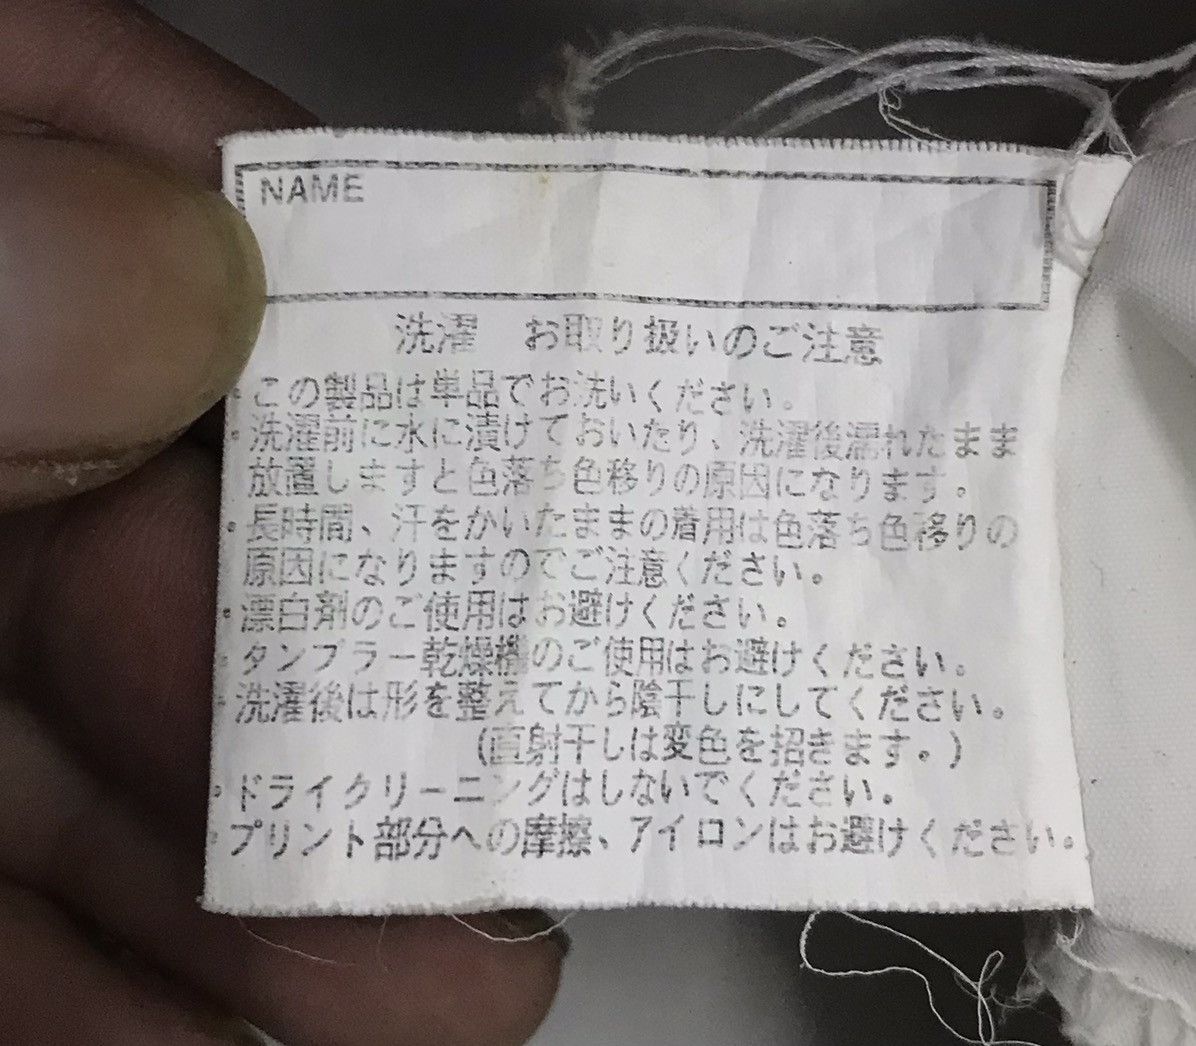 NAME
洗濯　お取り扱いのご注意
・この製品は単品でお洗いください。
・洗濯前に水に漬けておいたり、洗濯後濡れたまま
放置しますと色落ち色移りの原因になります。
・長時間、汗をかいたままの着用は色落ち色移りの
原因になりますのでご注意ください。
・漂白剤のご使用はお避けください。
・タンブラー乾燥機のご使用はお避けください。
・洗濯後は形を整えてから陰干しにしてください。
(直射干しは変色を招きます。)
・ドライクリーニングはしないでください。
・プリント部分への摩擦、アイロンはお避けください。